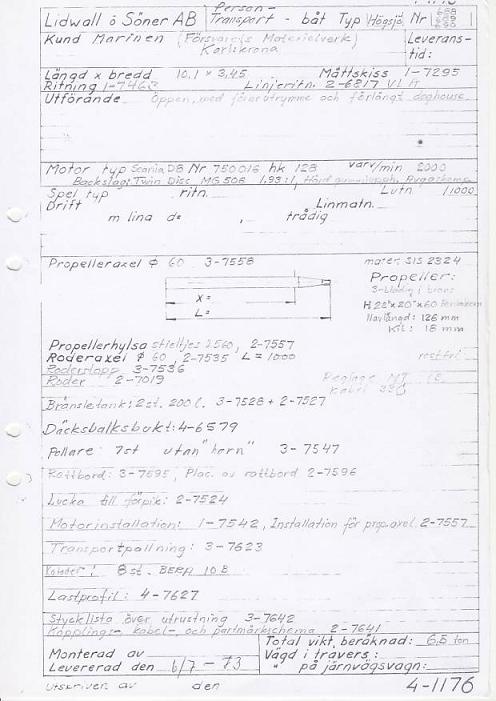 Lidwall & Söner AB Person-
Transport - båt Typ Högsjö Nr
Kund Marinen (Försvarets Materielverk) Leverans-
Karlskrona tid:
Längd x bredd 10,1 x 3,45 Måttskiss 1-7295
Ritning 1-7463 Linjeritn. 2-6817
Utförande Öppen, med förarutrymme och förlängt doghouse
Motor typ Scania D8 Nr 750016 hk 128 varv/min 2000
Backslag: Twin Disc MG 508 1.93:1,
Spel typ ritn. Lutn. /1000
Drift Linmatn.
m lina d= , trådig
Propelleraxel ϕ 60 3-7558 mater. SIS 2324
Propeller:
3-bladig i brons
X =
Navlängd: 126 mm
L = Kil: 18 mm
Propellerhylsa stieltjes 2560, 2-7557
Roderaxel ϕ 60 2-7535 L = 1000 rostfri
Roderstopp 3-7536
Roder 2-7019
Bränsletank: 2 st. 200 l. 3-7528 + 2-7527
Däcksbalksbukt: 4-6579
Pollare: 7st utan "horn" 3-7547
Rattbord: 3-7595, Plac. av rattbord 2-7596
Lucka till förpik: 2-7524
Motorinstallation: 1-7542, Installation för prop.axel 2-7557
Transportpallning: 3-7623
8 st. BERA 10 B
Lastprofil: 4-7627
Stycklista över utrustning 3-7642
Kopplings-, kabel- och partmärkschema 2-7641
Monterad av Total vikt, beräknad: 6,5 ton
Levererad den 6/7 - 73 Vägd i travers:
" på järnvägsvagn:
Utskriven av den 4-1176